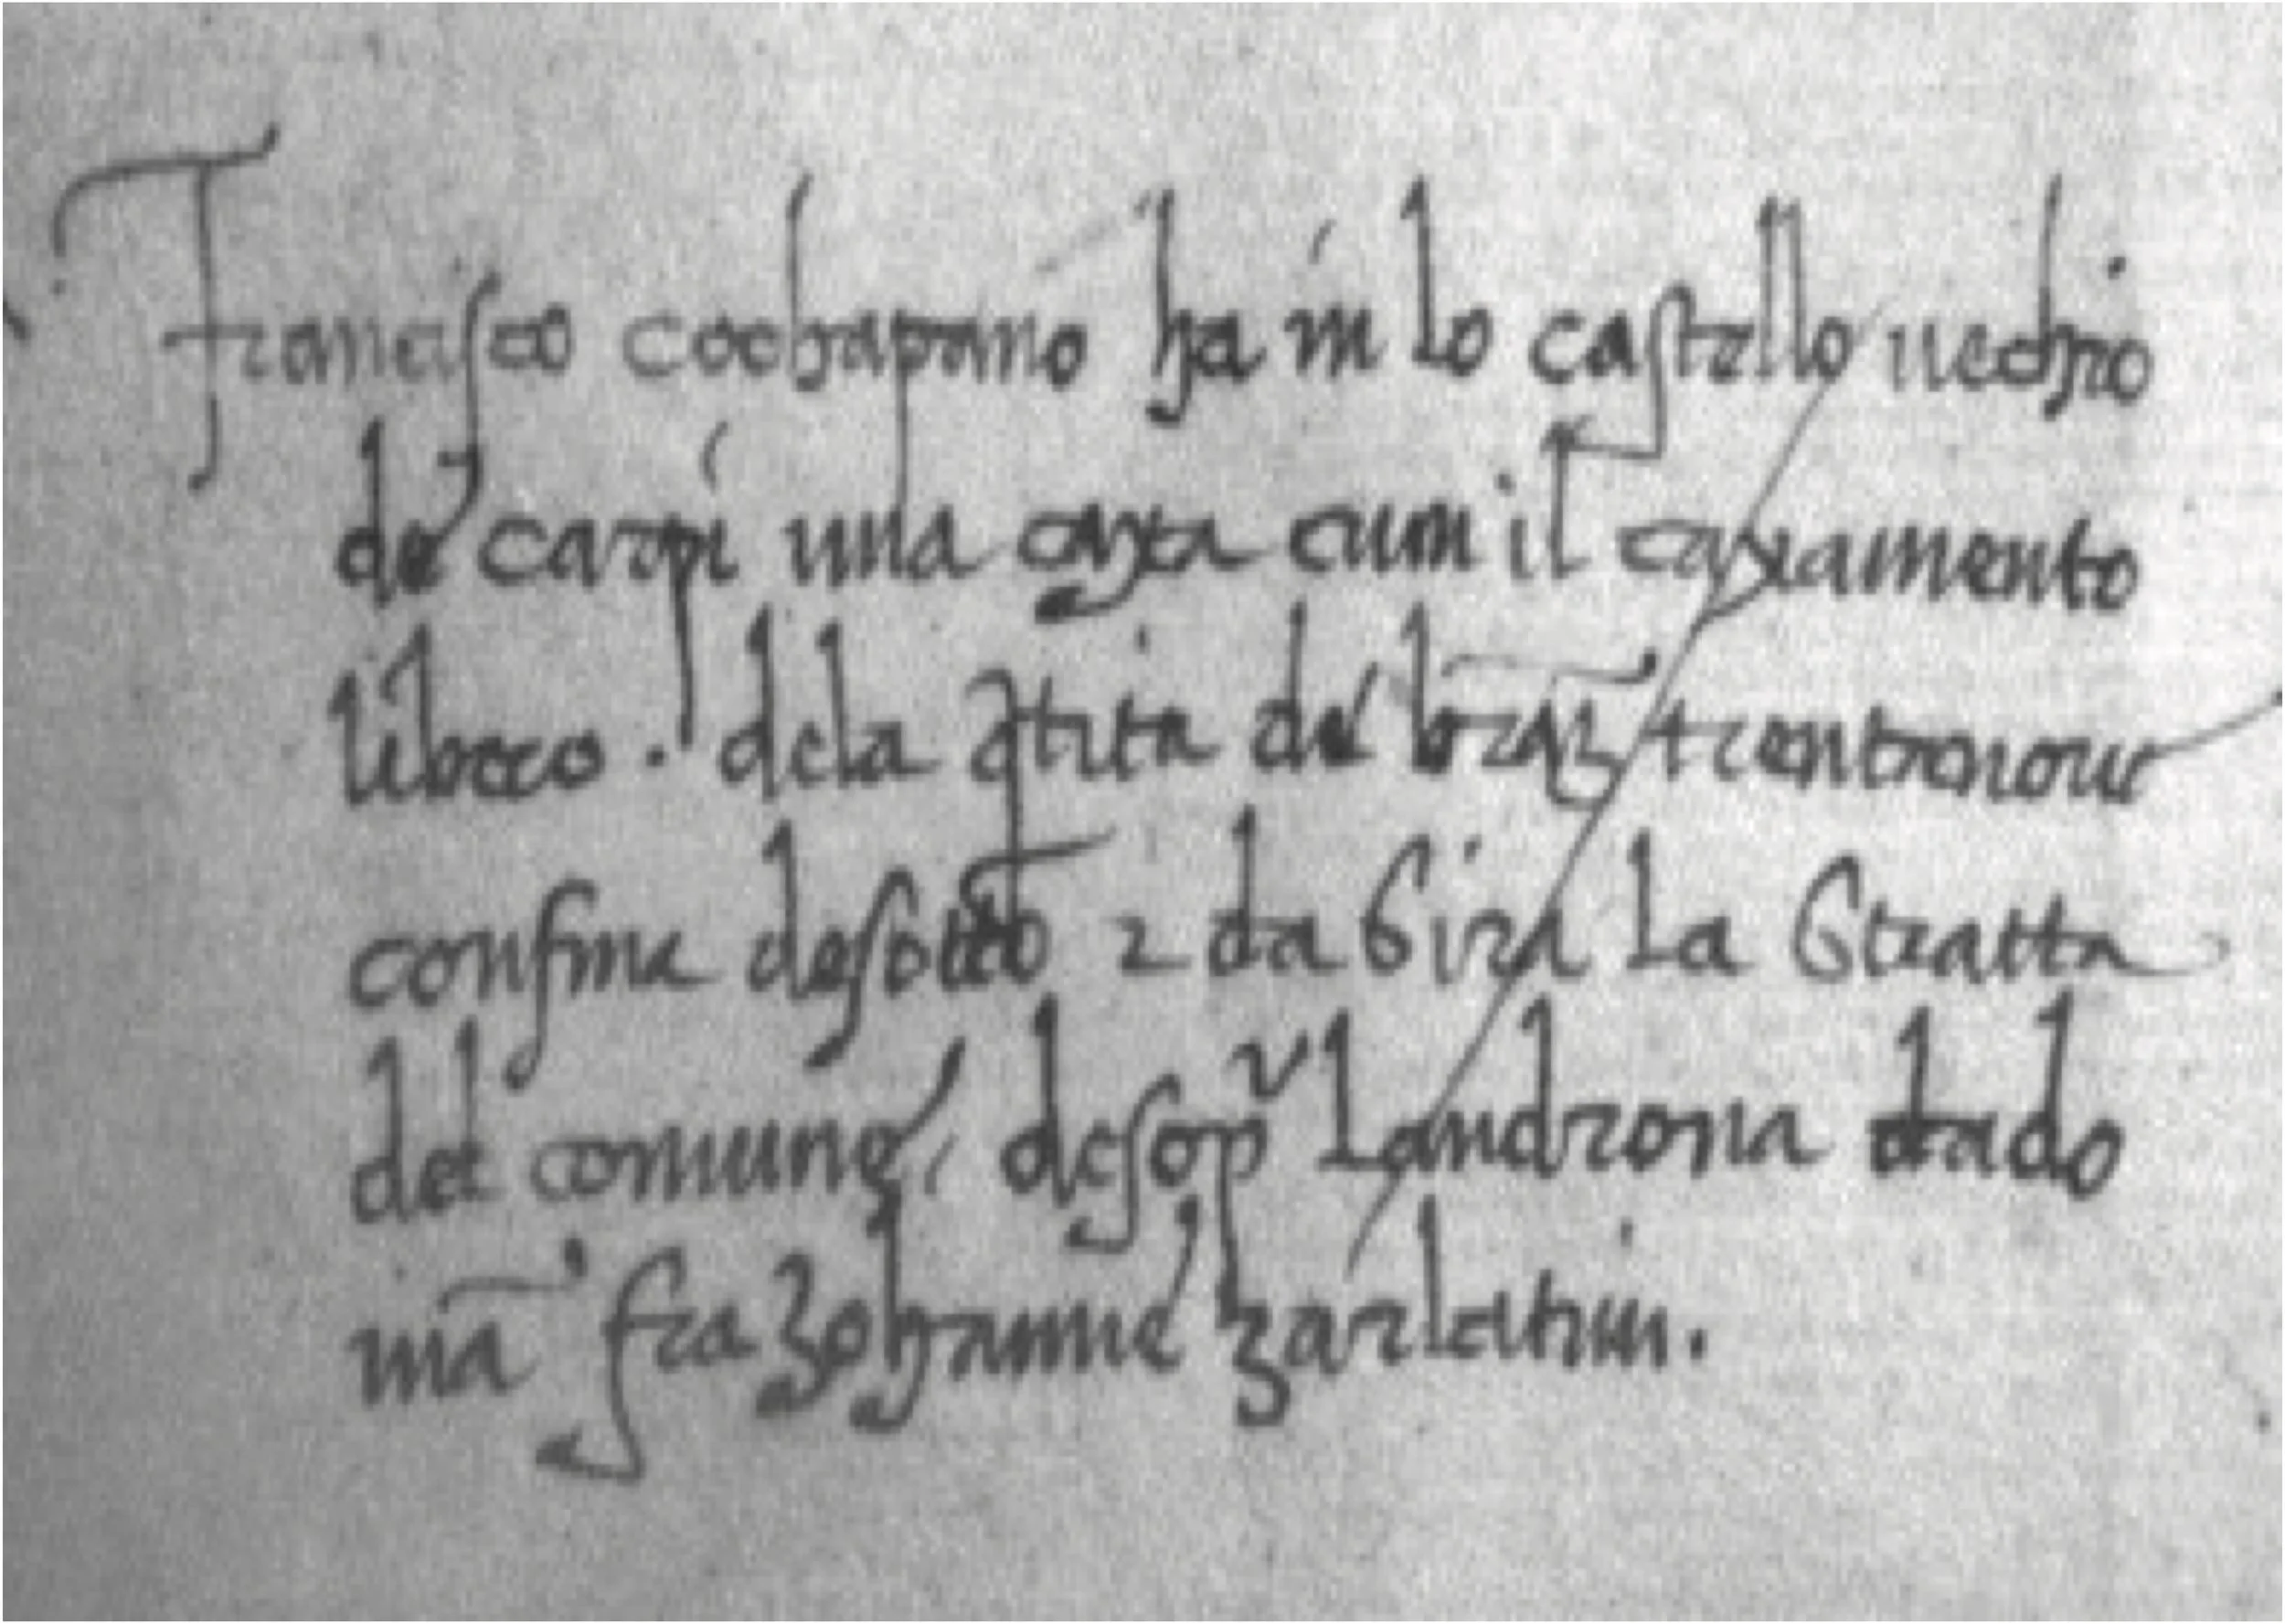 Francisco cochapano ha in lo castello uechio
de carpi una caxa cum il caxamento
libero. dela q̄tita de braz trentanoue
confina desotto 2 da sira la stratta
del comune, desop landrona da do
mā fra zohanne zarlatin.